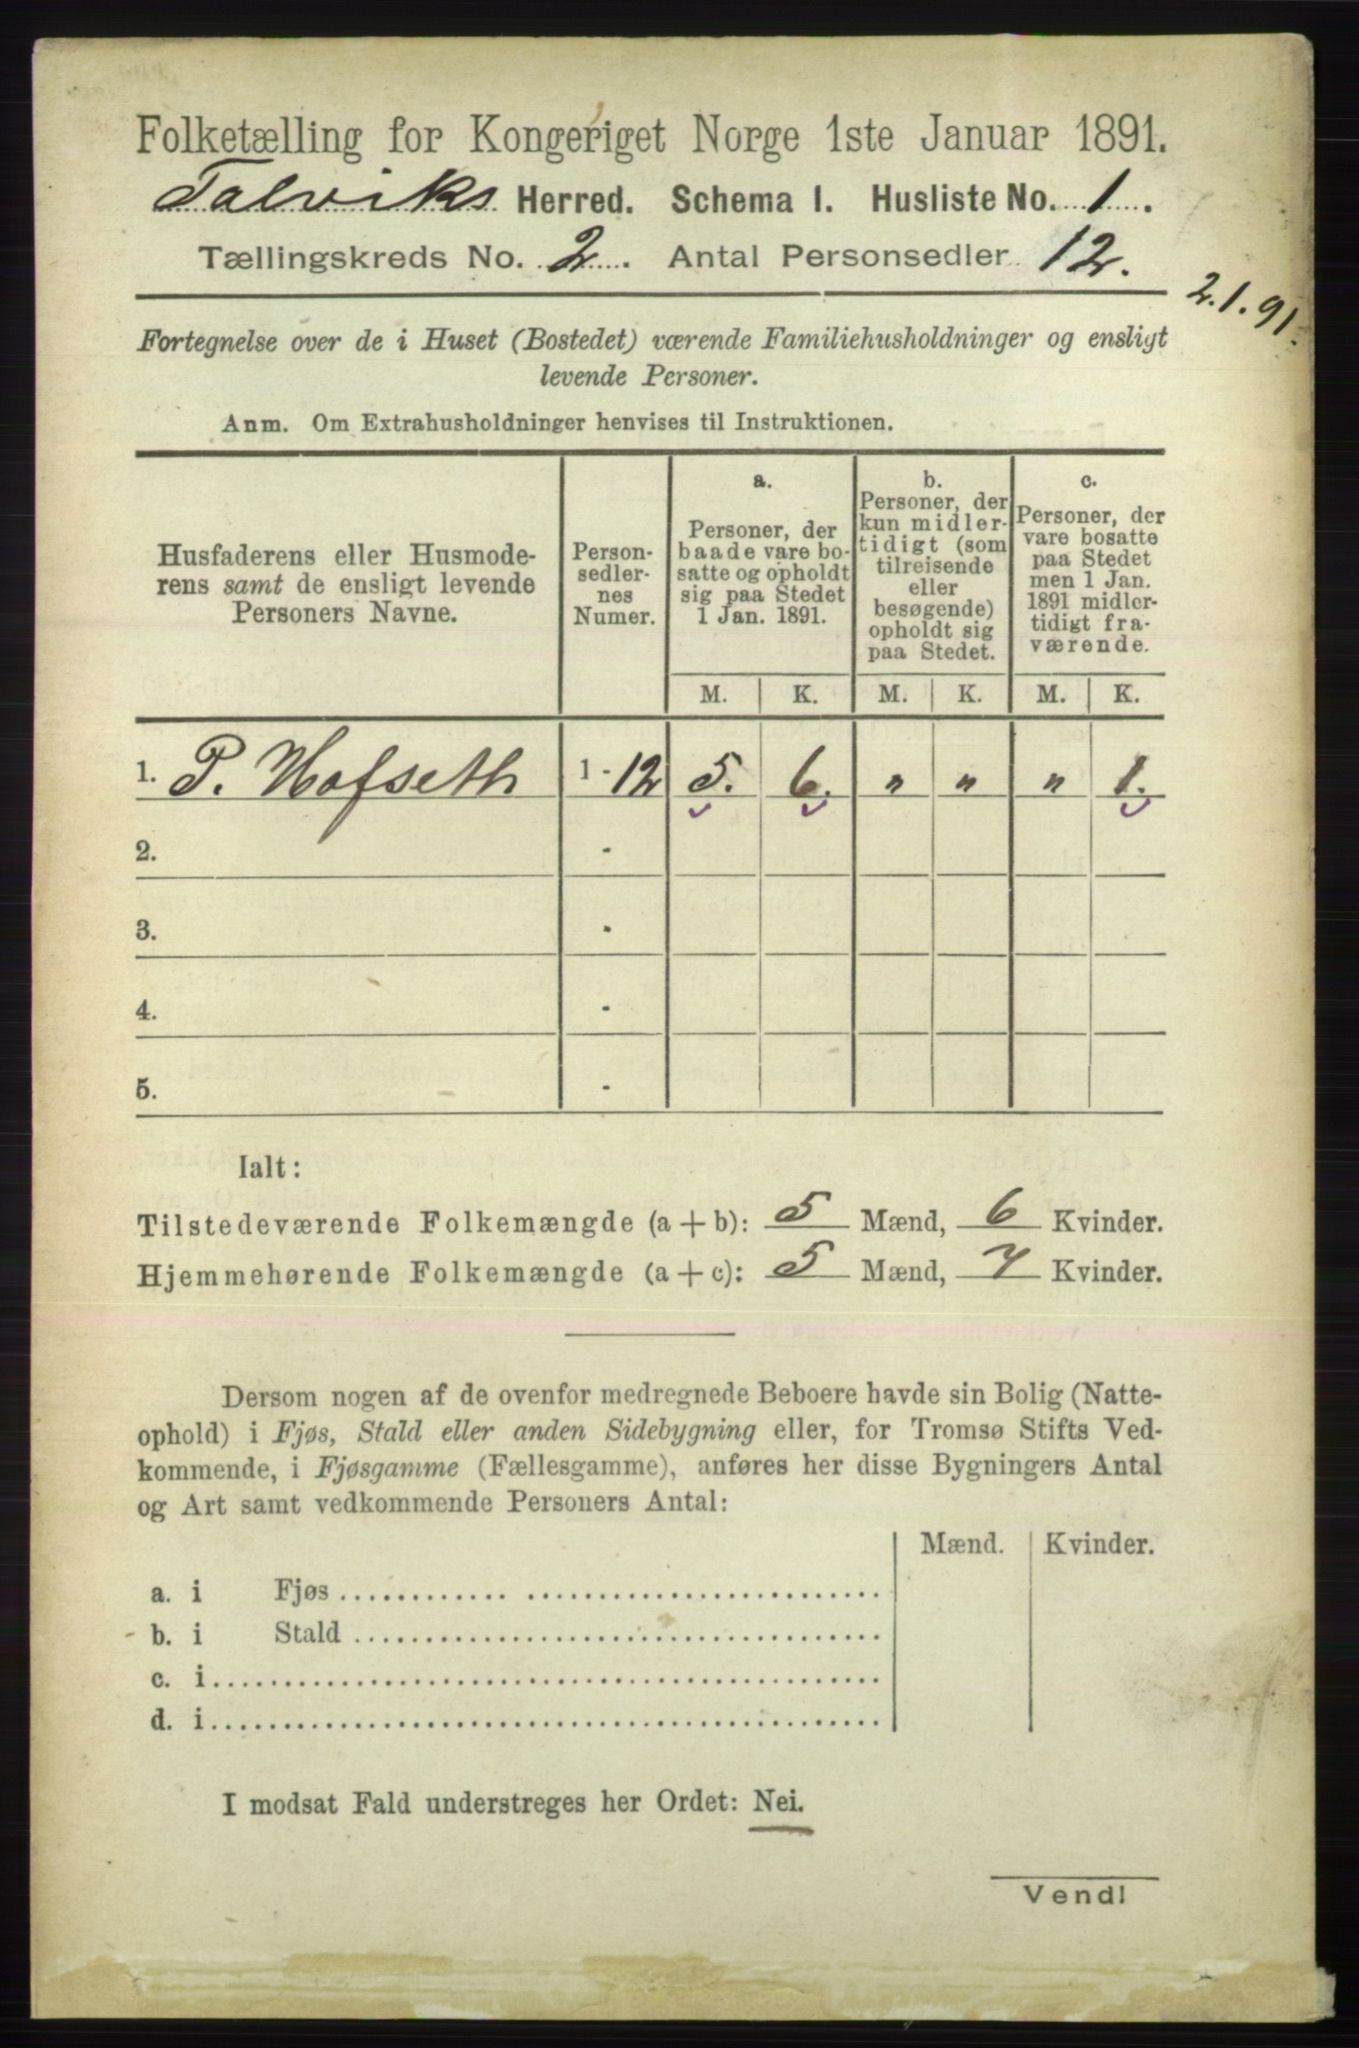 Folketælling for Kongeriget Norge 1ste Januar 1891.
Talviks Herred. Schema I. Husliste No. 1.
Tællingskreds No. 2. Antal Personsedler 12.
2.1.91.
Fortegnelse over de i Huset (Bostedet) værende Familiehusholdninger og ensligt
levende Personer.
Anm. Om Extrahusholdninger henvises til Instruktionen.
Husfaderens eller Husmode-
rens samt de ensligt levende
Personers Navne.
Person-
sedler-
nes
Numer.
a.
Personer, der
baade vare bo-
satte og opholdt
sig paa Stedet
1 Jan. 1891.
b.
Personer, der
kun midler-
tidigt (som
tilreisende
eller
besøgende)
opholdt sig
paa Stedet.
c.
Personer, der
vare bosatte
paa Stedet
men 1 Jan.
1891 midler-
tidigt fra-
værende.
M. K. M. K. M. K.
1. P. Hofseth 1 - 12 5. 6. " " " 1.
2. -
3. -
4. -
5. -
Ialt:
Tilstedeværende Folkemængde (a + b): 5 Mænd, 6 Kvinder.
Hjemmehørende Folkemængde (a + c): 5 Mænd, 7 Kvinder.
Dersom nogen af de ovenfor medregnede Beboere havde sin Bolig (Natte-
ophold) i Fjøs, Stald eller anden Sidebygning eller, for Tromsø Stifts Ved-
kommende, i Fjøsgamme (Fællesgamme), anføres her disse Bygningers Antal
og Art samt vedkommende Personers Antal:
Mænd. Kvinder.
a. i Fjøs
b. i Stald
c. i
d. i
I modsat Fald understreges her Ordet: Nei.
Vend!